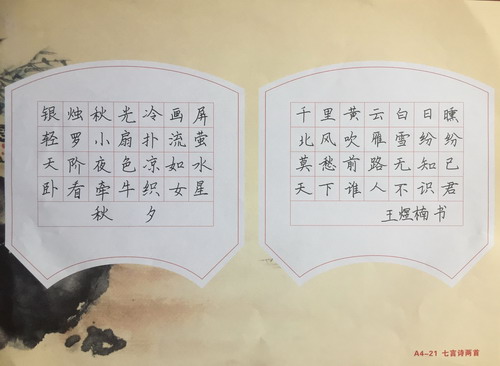 银烛秋光冷画屏
轻罗小扇扑流萤
天阶夜色凉如水
卧看牵牛织女星
秋夕
千里黄云白日曛
北风吹雁雪纷纷
莫愁前路无知己
天下谁人不识君
王煜楠书
A4-21 七言诗两首